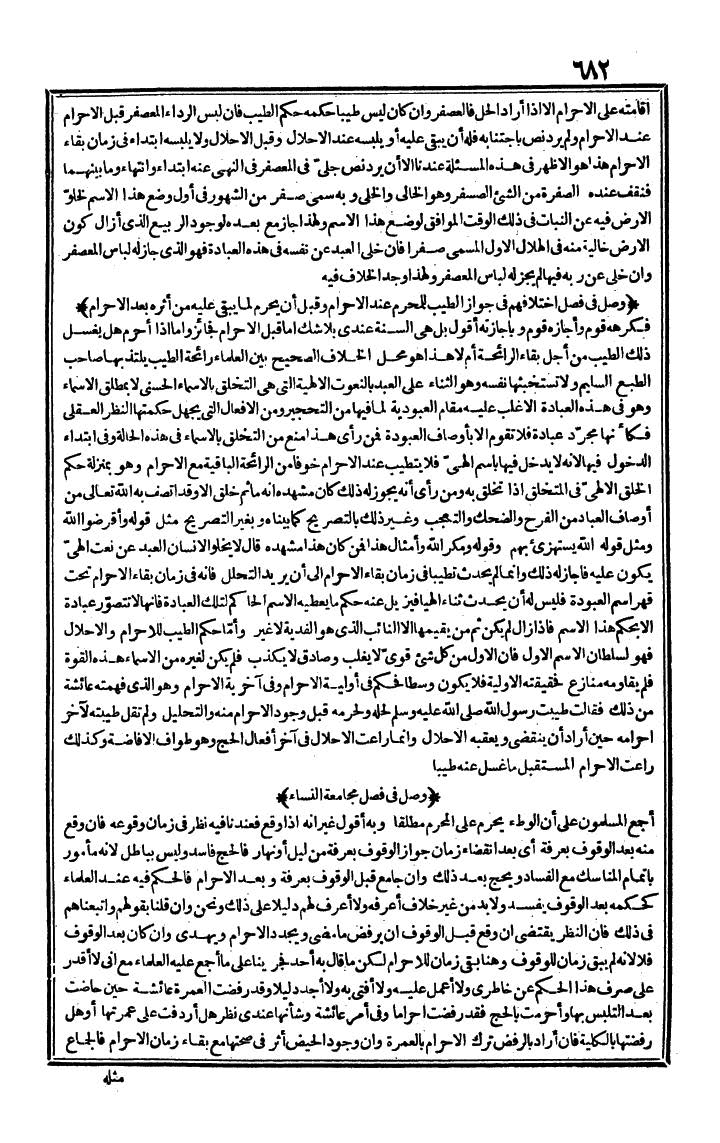 ٦٨٢
اقامته على الاحرام الا اذا أراد الحل فالعصفر وان كان ليس طيبا حكمه حكم الطيب فان لبس الرداء المعصفر قبل الاحرام
عند الاحرام ولم يرد نص باجتنابه فله أن يبقى عليه أو يلبسه عند الاحلال وقبل الاحلال ولا يلبسه ابتداء فى زمان بقاء
الاحرام هذا هو الاظهر فى هذه المسئلة عندنا الا أن يرد نص جلىّ فى المعصفر فى النهى عنه ابتداء وانتهاء وما بينهما
فنقف عنده الصفرة من الشئ الصفر وهو الخالى والخلى و به سمى صفر من الشهور فى أول وضع هذا الاسم لخلوّ
الارض فيه عن النبات فى ذلك الوقت الموافق لوضع هذا الاسم ولهذا جاز مع بعده لوجود الربيع الذى أزال كون
الارض خالية منه فى الهلال الاول المسمى صفرا فان خلى العبد عن نفسه فى هذه العبادة فهو الذى جاز له لباس المعصفر
وان خلى عن ربه فيها لم يجز له لباس المعصفر ولهذا وجد الخلاف فيه
﴿وصل فى فصل اختلافهم فى جواز الطيب للمحرم عند الاحرام وقبل أن يحرم لما يبقى عليه من أثره بعد الاحرام﴾
فكرهه قوم وأجازه قوم و باجازته أقول بل هى السنة عندى بلا شك اما قبل الاحرام فجائز واما اذا أحرم هل يغسل
ذلك الطيب من أجل بقاء الرائحة أم لا هذا هو محل الخلاف الصحيح بين العلماء رائحة الطيب يلتذ بها صاحب
الطبع السليم ولا تستخبثها نفسه وهو الثناء على العبد بالنعوت الالهية التى هى التخلق بالاسماء الحسنى لا بمطلق الاسماء
وهو فى هذه العبادة الاغلب عليه مقام العبودية لما فيها من التحجير ومن الافعال التى يجهل حكمتها النظر العقلى
فكأنها مجرّد عبادة فلا تقوم الا بأوصاف العبودة فمن رأى هذا منع من التخلق بالاسماء فى هذه الحالة وفى ابتداء
الدخول فيها لانه لا يدخل فيها باسم الهىّ فلا يتطيب عند الاحرام خوفا من الرائحة الباقية مع الاحرام وهو بمنزلة حكم
الخلق الالهىّ فى المتخلق اذا تخلق به ومن رأى أنه يجوز له ذلك كان مشهده انه ماثم خلق الا وقد اتصف به الله تعالى من
أوصاف العباد من الفرح والضحك والتعجب وغير ذلك بالتصريح كما بيناه و بغير التصريح مثل قوله وأقرضوا الله
ومثل قوله الله يستهزئ بهم وقوله ومكر الله وأمثال هذا فمن كان هذا مشهده قال لا يخلو الانسان العبد عن نعت الهىّ
يكون عليه فأجاز له ذلك وانما لم يحدث تطيبا فى زمان بقاء الاحرام الى أن يريد التحلل فانه فى زمان بقاء الاحرام تحت
قهر اسم العبودة فليس له أن يحدث ثناء الهيا فيزيل عنه حكم ما يعطيه الاسم الحاكم لتلك العبادة فانها لا تتصوّر عبادة
الا بحكم هذا الاسم فاذا زال لم يكن ثم من يقيمها الا النائب الذى هو الفدية لا غير وأمّا حكم الطيب للاحرام والاحلال
فهو لسلطان الاسم الاول فان الاول من كل شئ قوىّ لا يغلب وصادق لا يكذب فلم يكن لغيره من الاسماء هذه القوة
فلم يقاومه منازع لحقيقته الاولية فلا يكون وسطا فحكم فى أولية الاحرام وفى آخرية الاحرام وهو الذى فهمته عائشة
من ذلك فقالت طيبت رسول الله صلى الله عليه وسلم لحله ولحرمه قبل وجود الاحرام منه والتحليل ولم تقل طيبته لآخر
احرامه حين أراد أن ينقضى و يعقبه الاحلال وانما راعت الاحلال فى آخر أفعال الحج وهو طواف الافاضة وكذلك
راعت الاحرام المستقبل ما غسل عنه طيبا
﴿وصل فى فصل مجامعة النساء﴾
أجمع المسلمون على أن الوطء يحرم على المحرم مطلقا وبه أقول غير انه اذا وقع فعندنا فيه نظر فى زمان وقوعه فان وقع
منه بعد الوقوف بعرفة أى بعد انقضاء زمان جواز الوقوف بعرفة من ليل أو نهار فالحج فاسد وليس بباطل لانه مأمور
باتمام المناسك مع الفساد و يحج بعد ذلك وان جامع قبل الوقوف بعرفة و بعد الاحرام فالحكم فيه عند العلماء
كحكمه بعد الوقوف يفسد ولا بد من غير خلاف أعرفه ولا أعرف لهم دليلا على ذلك ونحن وان قلنا بقولهم واتبعناهم
فى ذلك فان النظر يقتضى ان وقع قبل الوقوف ان يرفض ما مضى و يجدد الاحرام و يهدى وان كان بعد الوقوف
فلا لانه لم يبق زمان للوقوف وهنا بقى زمان للاحرام لكن ما قال به أحد فجرينا على ما أجمع عليه العلماء مع انى لا أقدر
على صرف هذا الحكم عن خاطرى ولا أعمل عليه ولا أفتى به ولا أجد دليلا وقد رفضت العمرة عائشة حين حاضت
بعد التلبس بها وأحرمت بالحج فقد رفضت احراما وفى أمر عائشة وشأنها عندى نظر هل أردفت على عمرتها أو هل
رفضتها بالكلية فان أراد بالرفض ترك الاحرام بالعمرة وان وجود الحيض أثر فى صحتها مع بقاء زمان الاحرام فالجماع
مثله